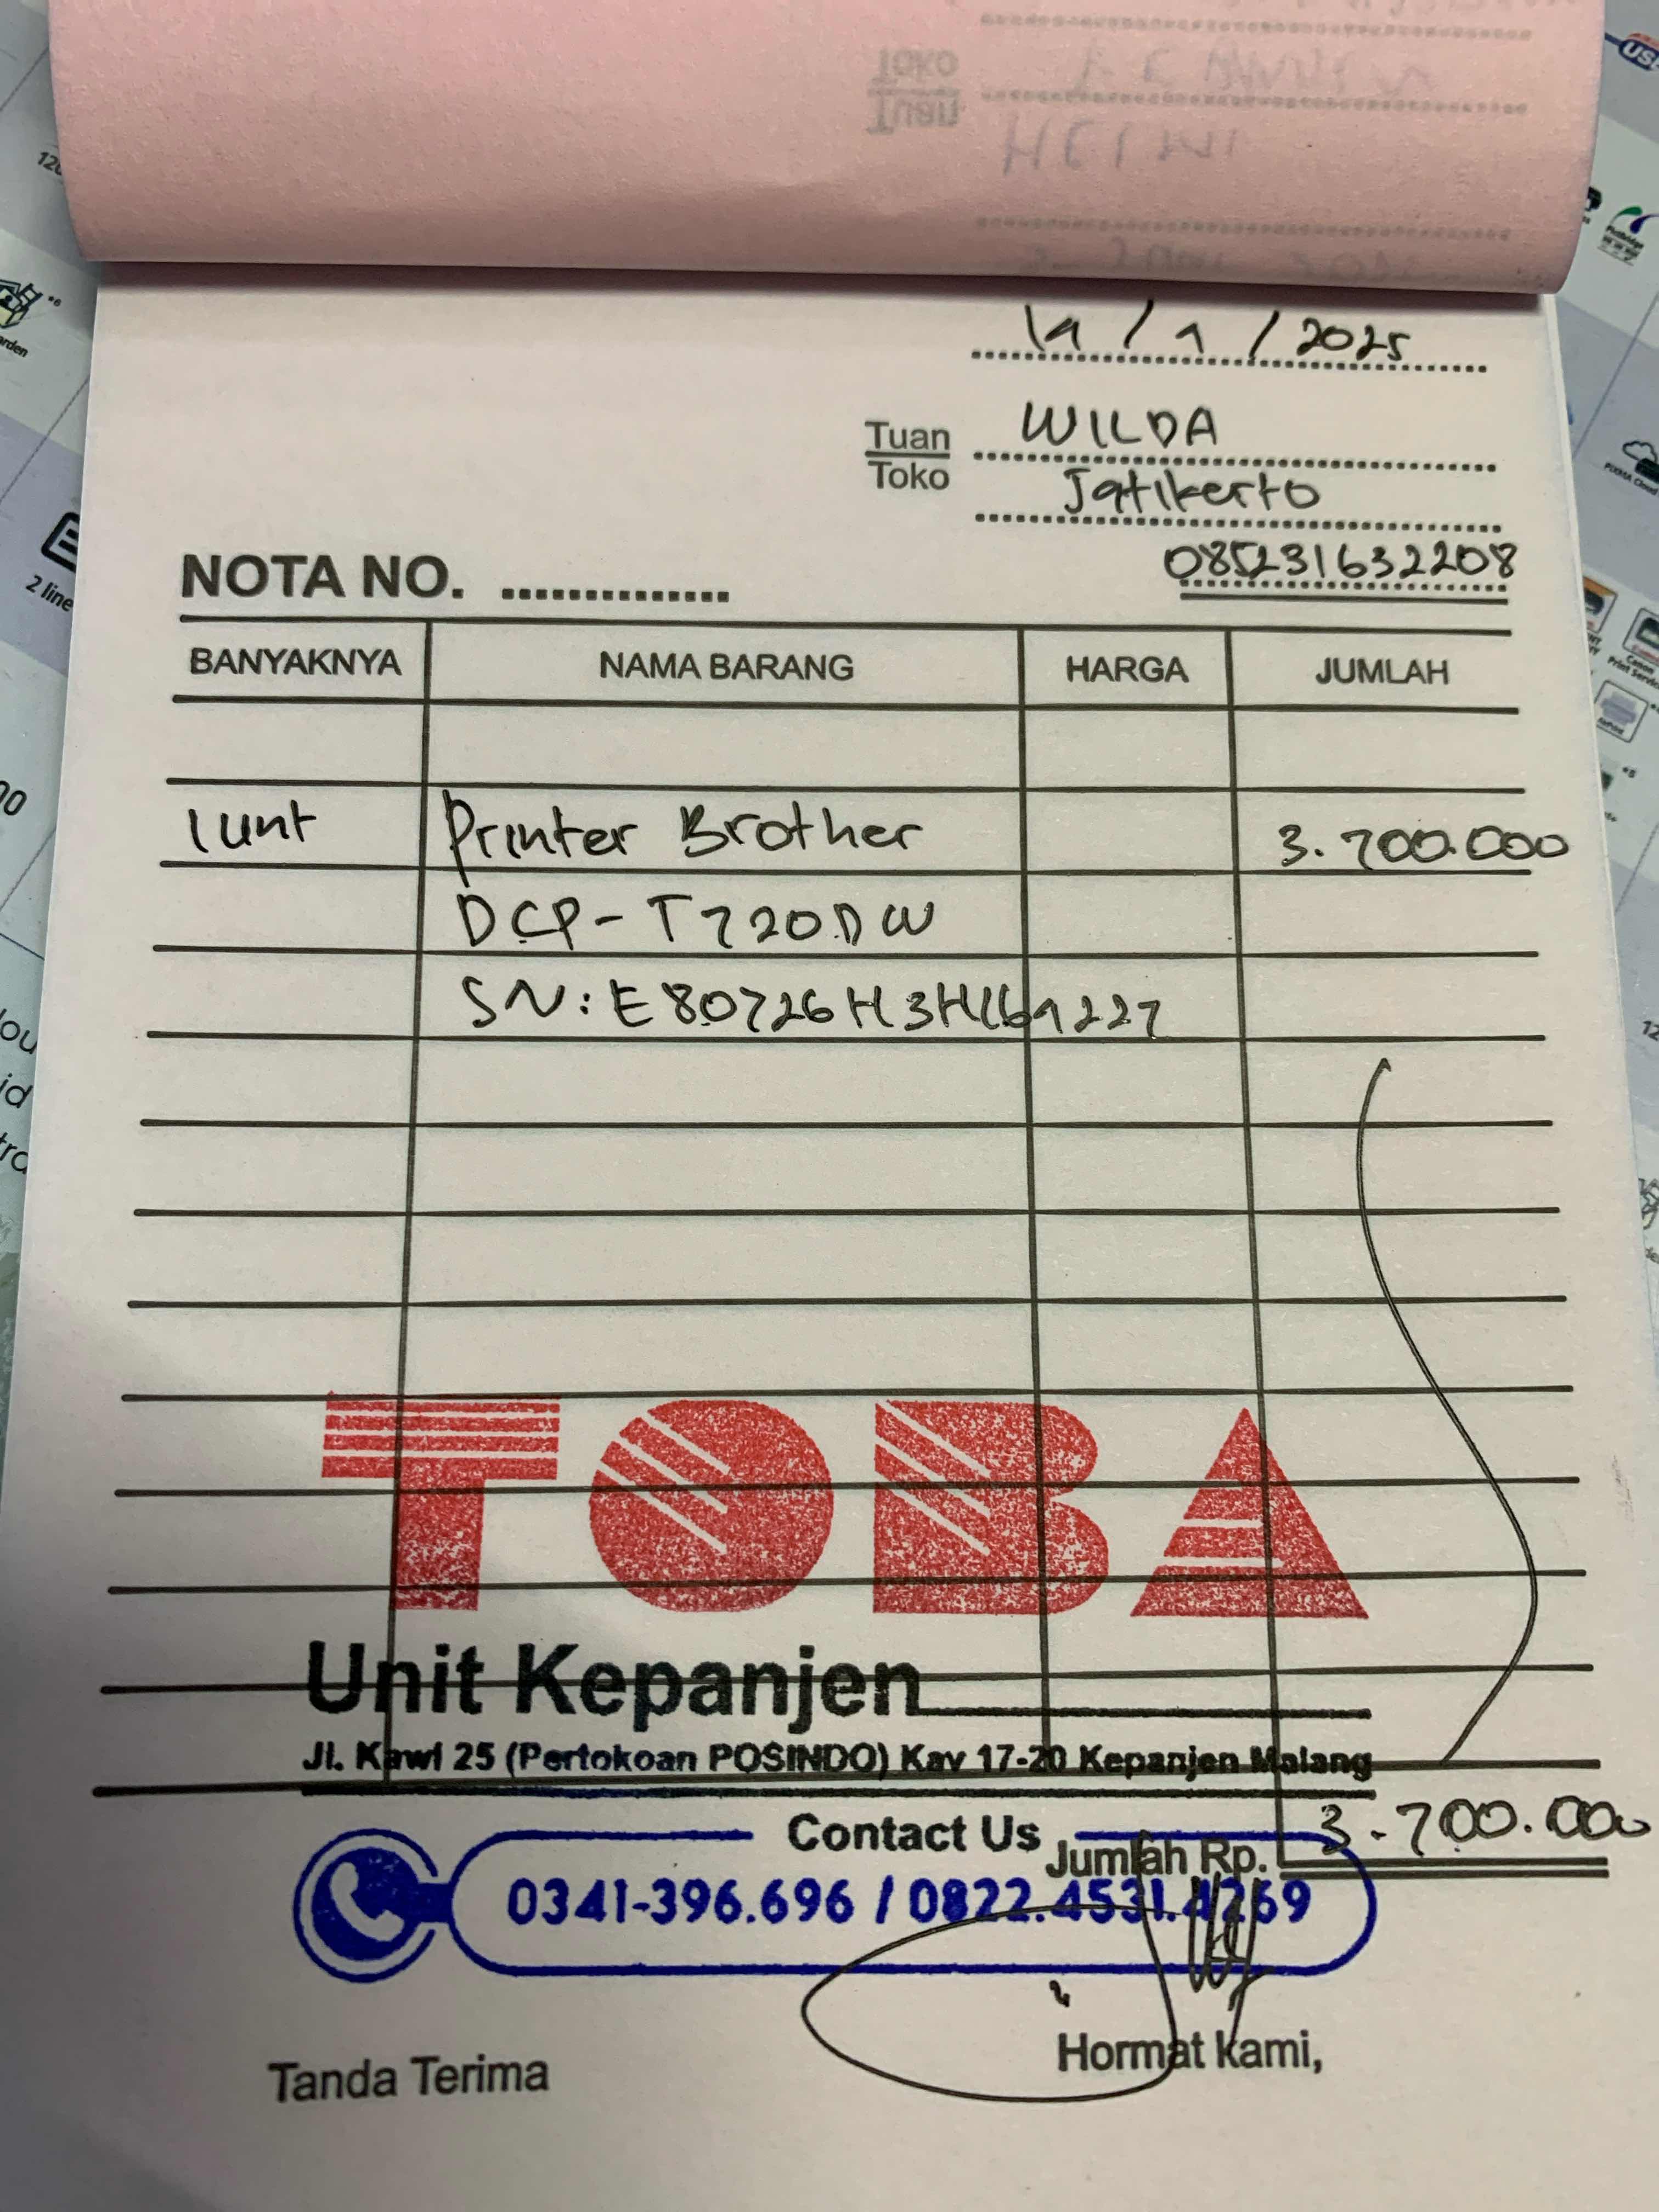 / 2025
Tuan
Toko
WILDA
Jatikerto
085231632208
NOTA NO. ..............
BANYAKNYA NAMA BARANG HARGA JUMLAH
1 unt Printer Brother 3.700.000
DCP-T720DW
SN:
TOBA
Unit Kepanjen
Jl. Kawi 25 (Pertokoan POSINDO) Kav 17-20 Kepanjen Malang
Contact Us
Jumlah Rp. 3.700.000
0341-396.696 / 0822.4531.4269
Tanda Terima
Hormat kami,